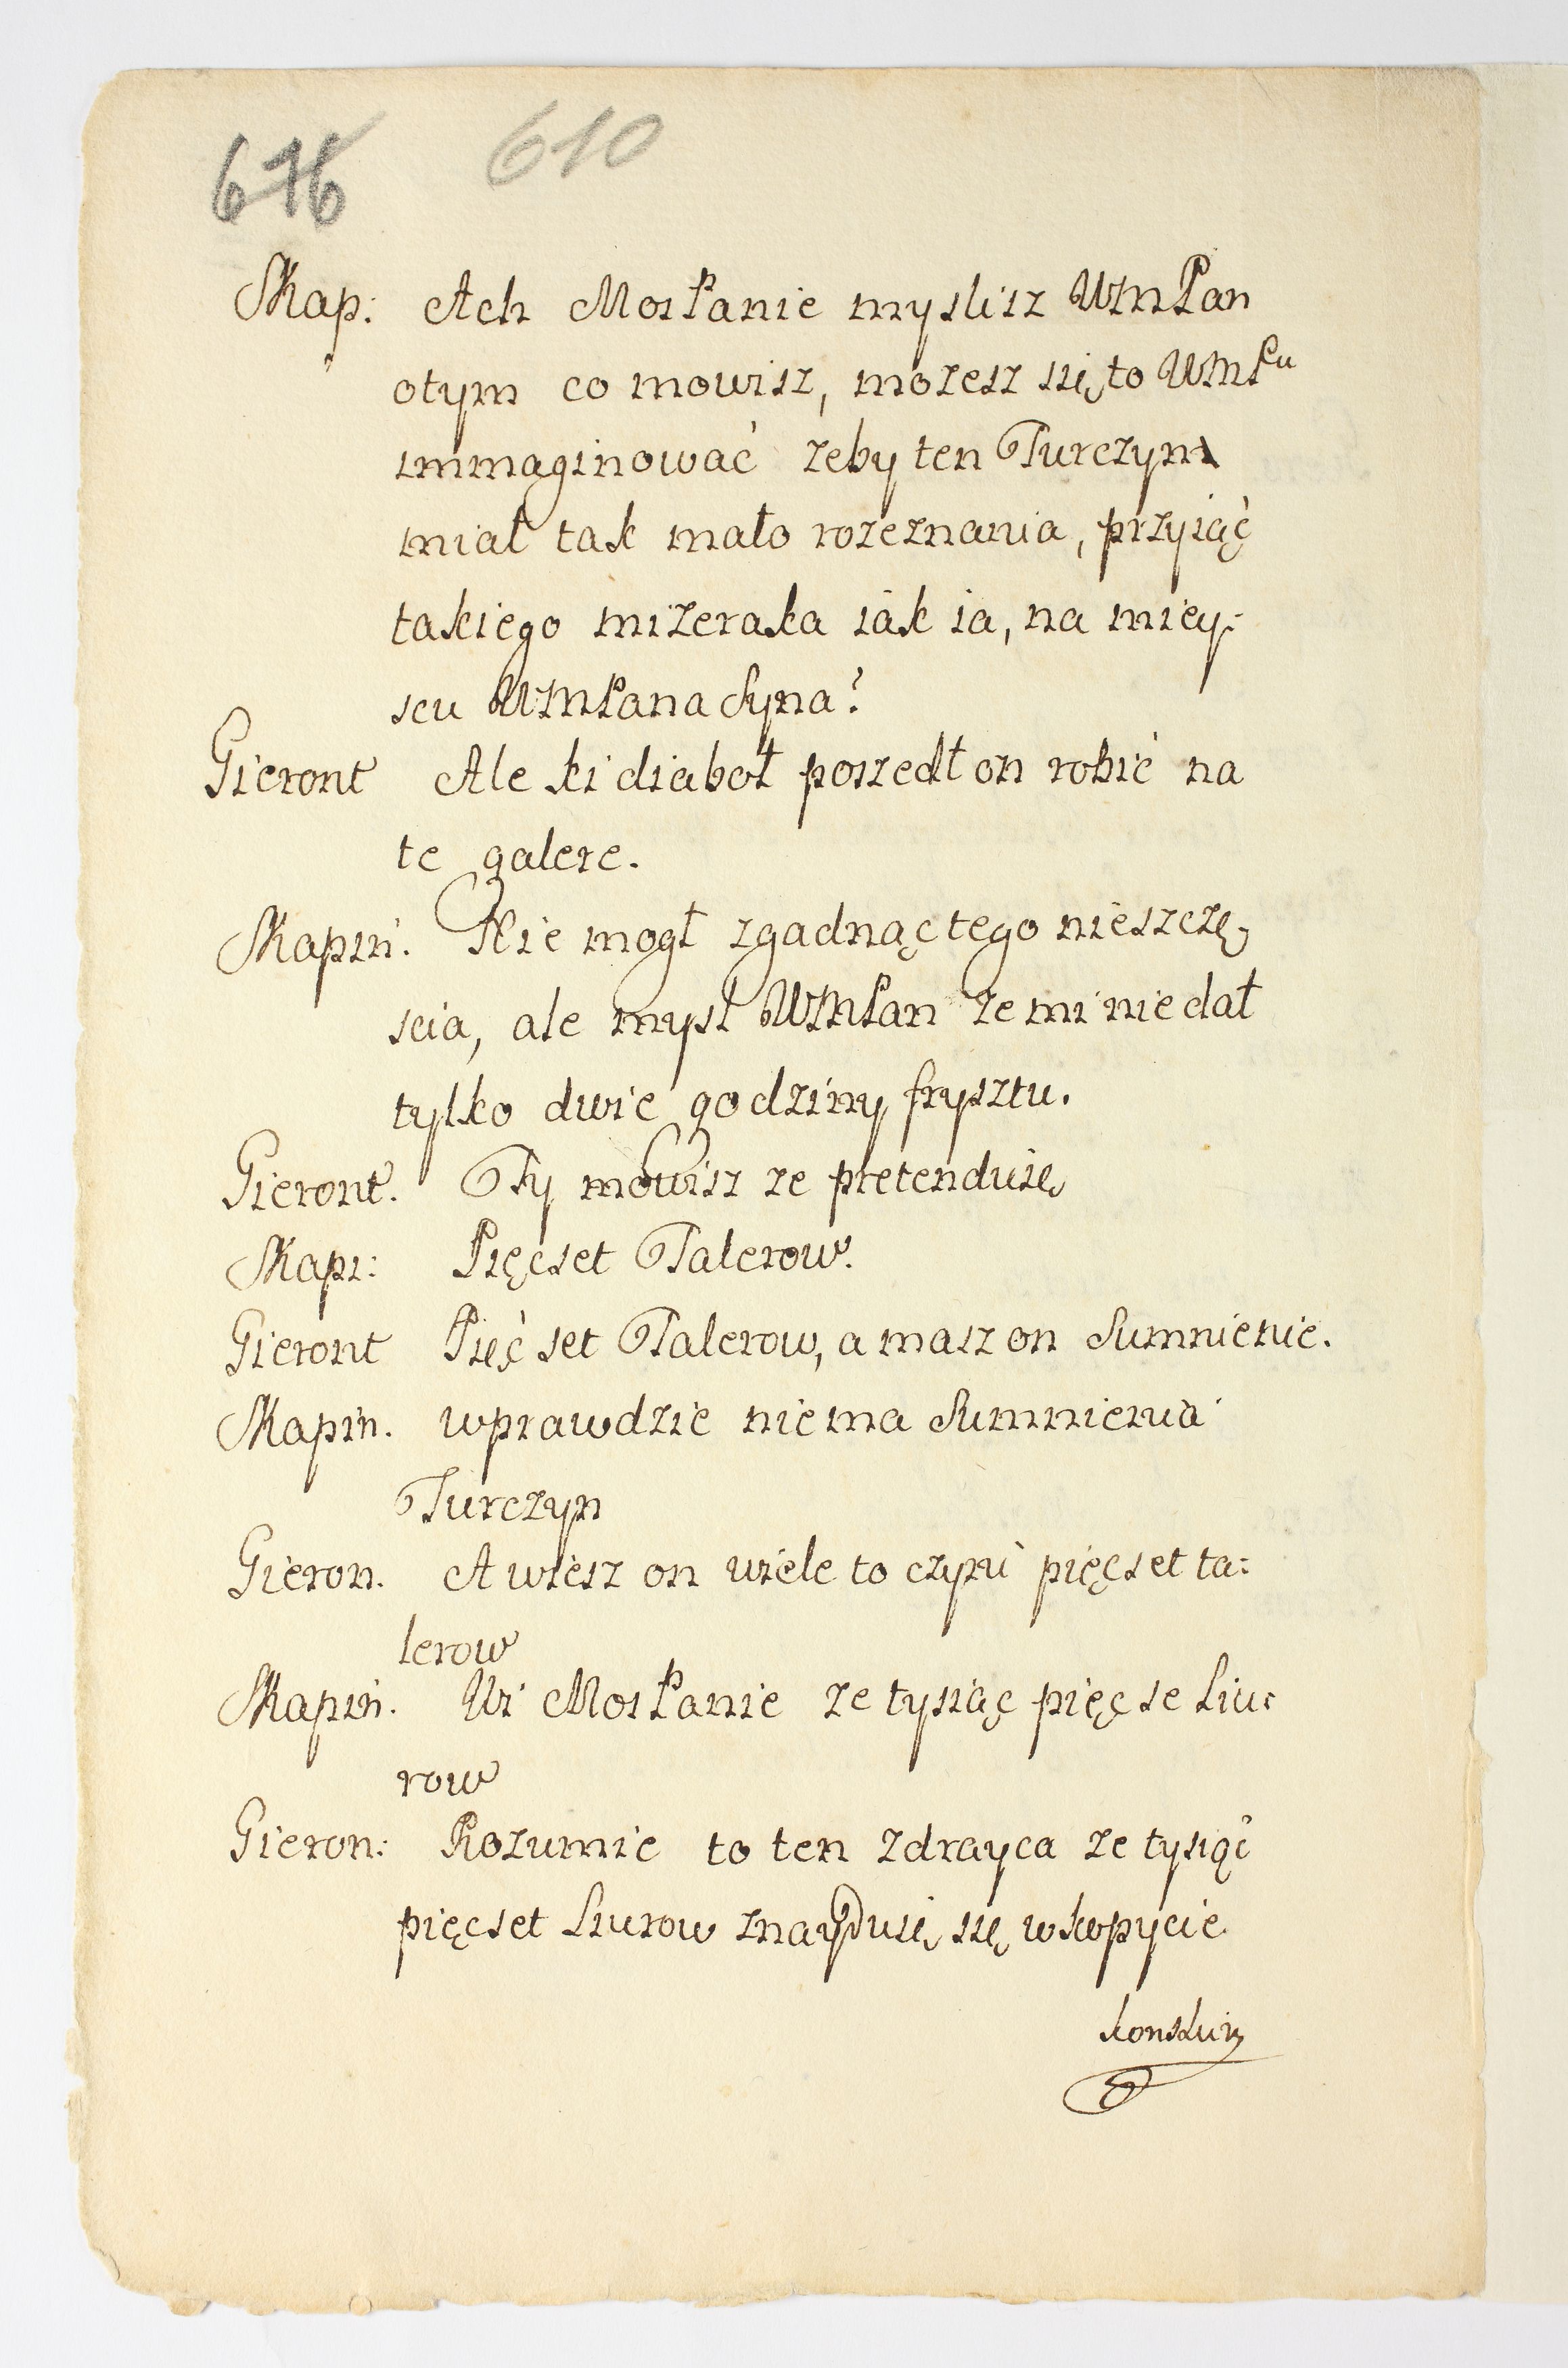 676 610
Skap: Ach MosPanie myslisz WMPan
otym co mowisz, mozesz się to WMPu
immaginować zeby ten Turczyn
miał tak mało rozeznania, przyiąć
takiego mizeraka iak ia, na miey:
scu WMPana Syna?
Gieront Ale ki diaboł poszedł on robić na
te galere.
Skapin. Nie mogł zgadnąc tego nieszczę,
scia, ale mysl WMPan ze mi nie dał
tylko dwie godziny frysztu.
Gieront. Ty mowisz ze pretenduię
Skapi: Pięcset Talerow.
Gieront Pięć set Talerow, a masz on Sumnienie.
Skapin. wprawdzie niema Sumnienia
Turczyn
Gieron. A wiesz on wiele to czyni pięcset ta:
lerow
Skapin. Wi MosPanie ze tysiąc pięc se Liu:
row
Gieron: Rozumie to ten zdrayca ze tysiąc
pięcset Liurow znayduię się w kopycie
konskim